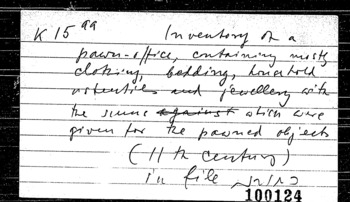 K 15 aa Inventory of a
pawn-office, containing mostly
clothing, bedding, household
utensiles and jewellery with
the sums against which were
given for the pawned objects
(11th century)
in file
100124